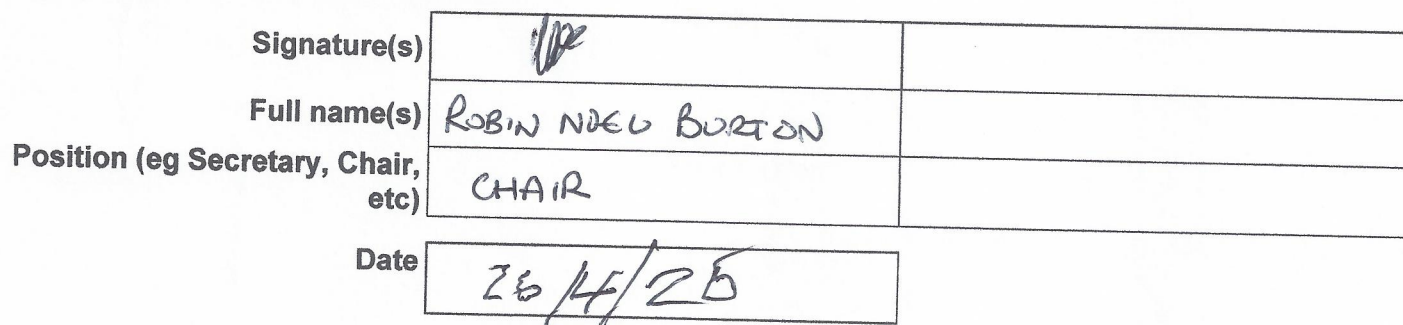 Signature(s)
Full name(s) ROBIN BURTON
Position (eg Secretary, Chair,
etc) CHAIR
Date